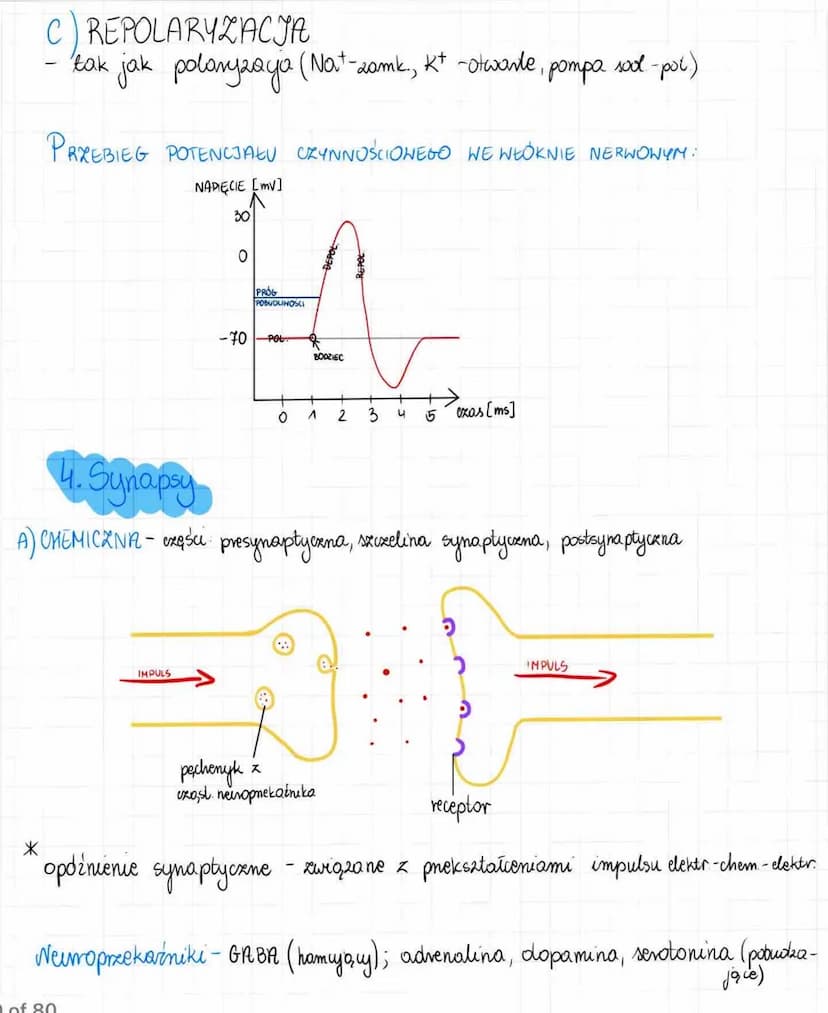 C) REPOLARYZACJA
- tak jak polaryzacja (Na⁺-zamk., K⁺ -otwarte, pompa sod -pot)
PRZEBIEG POTENCJAŁU CZYNNOŚCIOWEGO WE WŁÓKNIE NERWOWYM:
NAPIĘCIE [mV]
30
0
DEPOL.
REPOL
PRÓG
POBUDLIWOŚCI
-70
POL.
BODZIEC
0 1 2 3 4 5 czas [ms]
4. Synapsy
A) CHEMICZNA - części: presynaptyczna, szczelina synaptyczna, postsynaptyczna
IMPULS
IMPULS
pęcherzyk z
cząst. neuroprzekaźnika
receptor
* opóźnienie synaptyczne - związane z przekształceniami impulsu elektr-chem-elektr.
Neuroprzekaźniki - GABA (hamujący); adrenalina, dopamina, serotonina (pobudza-
jące)
of 80